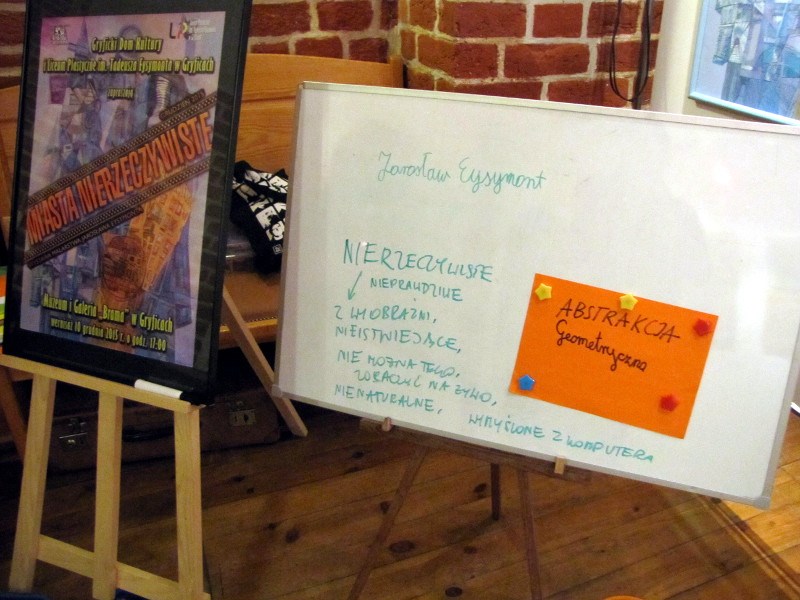 Gryficki Dom Kultury
i Liceum Plastyczne im. Tadeusza Eysymonta w Gryficach
zapraszają
MIASTA NIERZECZYWISTE
Muzeum i Galeria „Brama” w Gryficach
wernisaż 10 grudnia 2015 r. o godz. 17:00
Jarosław Eysymont
NIERZECZYWISTE
NIEPRAWDZIWE
Z WYOBRAŹNI,
NIEISTNIEJĄCE,
NIE MOŻNA TEGO,
ZOBACZYĆ NA ŻYWO,
NIENATURALNE, WYMYŚLONE Z KOMPUTERA
ABSTRAKCJA
Geometryczna